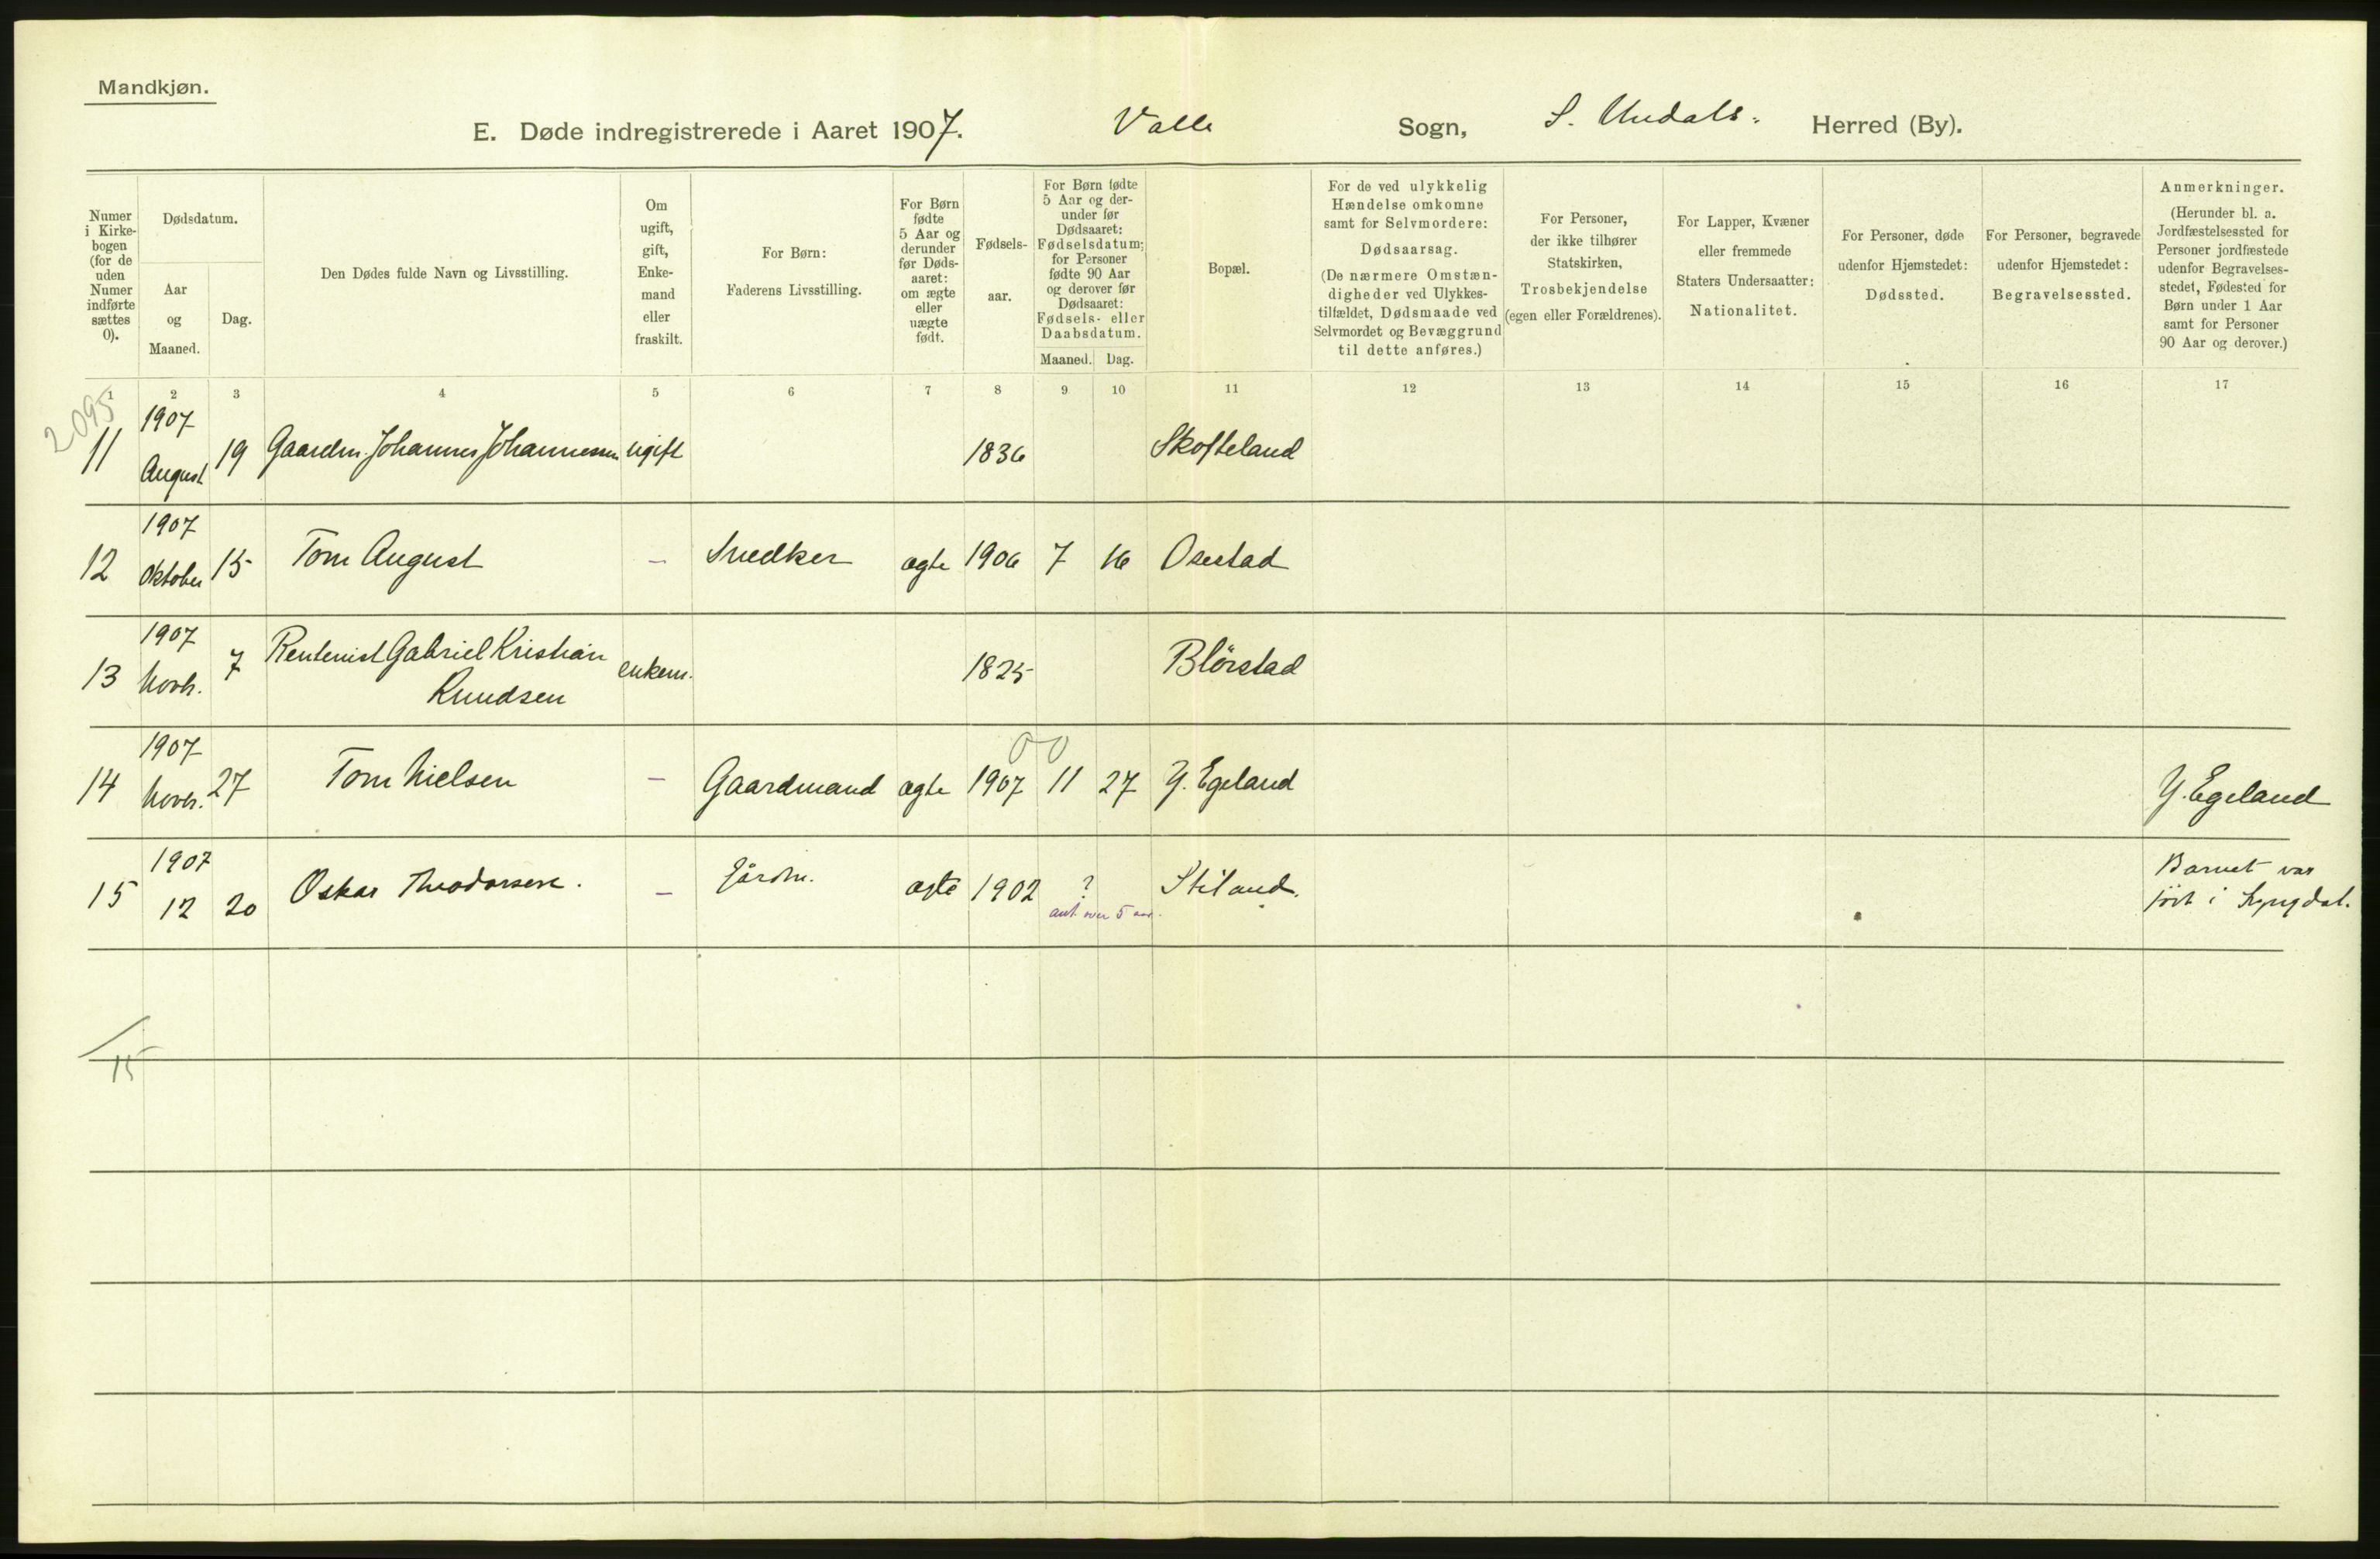 Mandkjøn.
E. Døde indregistrerede i Aaret 1907. Valle Sogn, S. Undals. Herred (By).
Numer i Kirke-bogen (for de uden Numer indførte sættes 0).
Dødsdatum.
Aar og Maaned.
Dag.
Den Dødes fulde Navn og Livsstilling.
Om ugift, gift, Enke-mand eller fraskilt.
For Børn:
Faderens Livsstilling.
For Børn fødte 5 Aar og derunder før Døds-aaret: om ægte eller uægte født.
Fødsels-aar.
For Børn fødte 5 Aar og der-under før Dødsaaret: Fødselsdatum; for Personer fødte 90 Aar og derover før Dødsaaret: Fødsels- eller Daabsdatum.
Maaned. Dag.
Bopæl.
For de ved ulykkelig Hændelse omkomne samt for Selvmordere:
Dødsaarsag.
(De nærmere Omstæn-digheder ved Ulykkes-tilfældet, Dødsmaade ved Selvmordet og Bevæggrund til dette anføres.)
For Personer, der ikke tilhører Statskirken,
Trosbekjendelse
(egen eller Forældrenes).
For Lapper, Kvæner eller fremmede Staters Undersaatter:
Nationalitet.
For Personer, døde udenfor Hjemstedet:
Dødssted.
For Personer, begravede udenfor Hjemstedet:
Begravelsessted.
Anmerkninger.
(Herunder bl. a. Jordfæstelsessted for Personer jordfæstede udenfor Begravelses-stedet, Fødested for Børn under 1 Aar samt for Personer 90 Aar og derover.)
1 2 3 4 5 6 7 8 9 10 11 12 13 14 15 16 17
2095
1907
11 August 19 Gaardm. Johannes Johannessen ugift 1836 Skofteland
1907
12 Oktober 15 Tom August – Snedker ægte 1906 7 16 Osestad
1907
13 Novb. 7 Rentenist Gabriel Kristian
Knudsen enkem. 1825 Blörstad
1907 00
14 Novb. 27 Tom Nielsen – Gaardmand ægte 1907 11 27 Y. Egeland Y. Egeland
1907
15 12 20 Oskar Theodorsen. – Gårdm. ægte 1902 ? Stiland. Barnet var
ant. over 5 aar. född i Lyngdal.
15